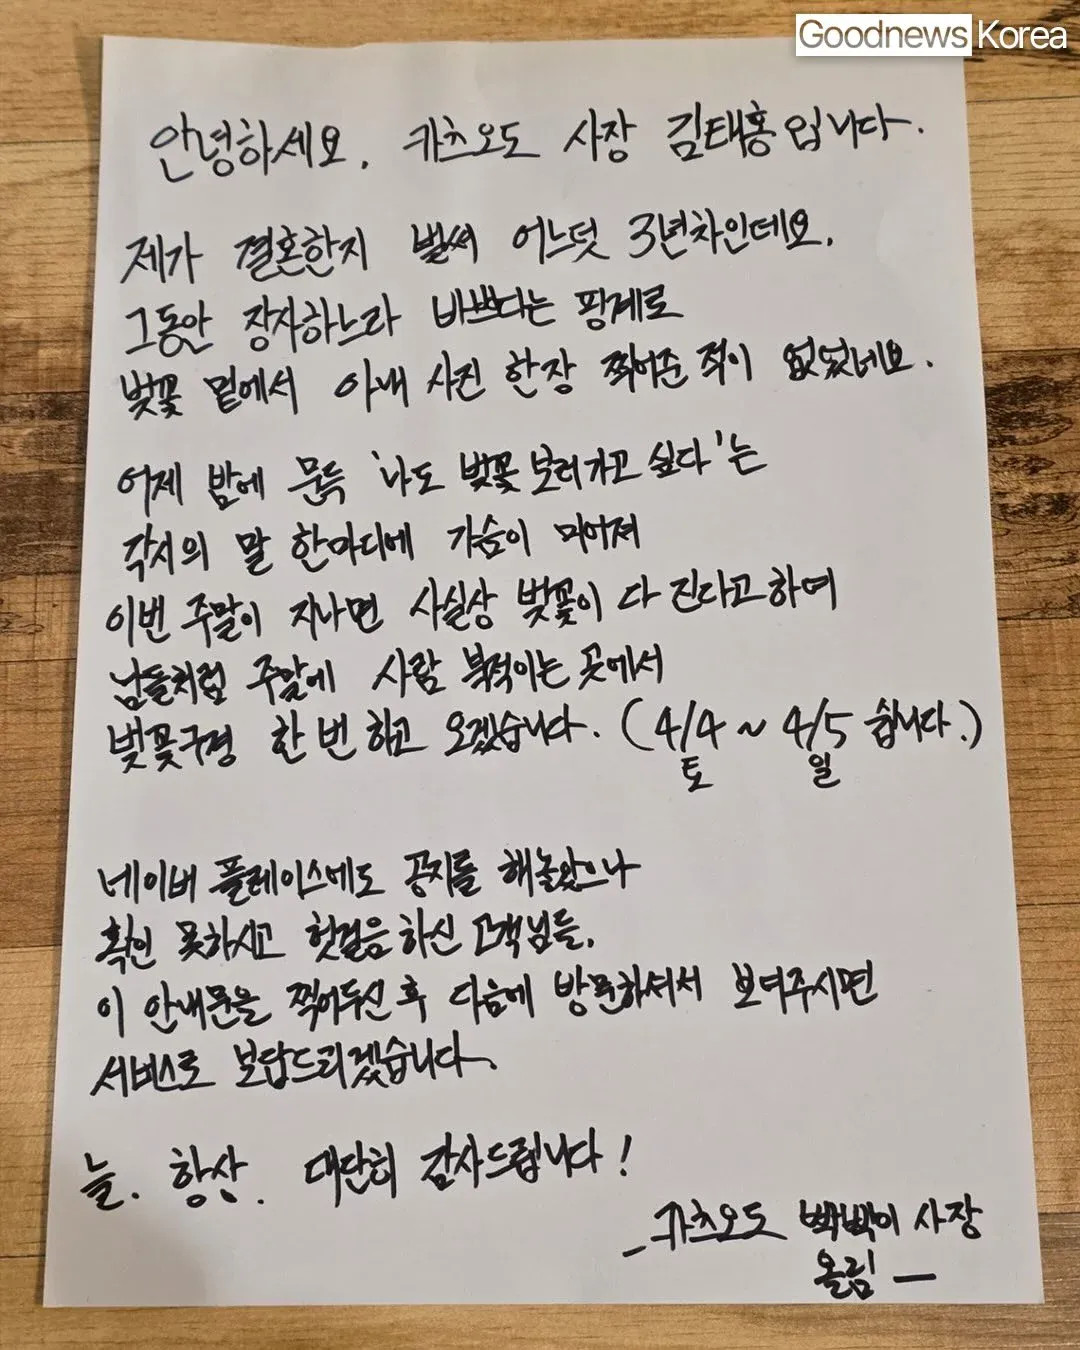 Goodnews Korea
안녕하세요. 카츠오도 사장 김태홍입니다.
제가 결혼한지 벌써 어느덧 3년차인데요.
그동안 장사하느라 바쁘다는 핑계로
벚꽃 밑에서 아내 사진 한장 찍어준 적이 없었네요.
어제 밤에 문득 '나도 벚꽃 보러가고 싶다'는
각시의 말 한마디에 가슴이 미어져
이번 주말이 지나면 사실상 벚꽃이 다 진다고하여
남들처럼 주말에 사람 북적이는 곳에서
벚꽃구경 한 번 하고 오겠습니다. (4/4 ~ 4/5 쉽니다.)
토 일
네이버 플레이스에도 공지를 해놓았으나
확인 못하시고 헛걸음 하신 고객님들,
이 안내문을 찍어두신 후 다음에 방문하셔서 보여주시면
서비스로 보답드리겠습니다.
늘. 항상. 대단히 감사드립니다!
_카츠오도 빡빡이 사장
올림 —